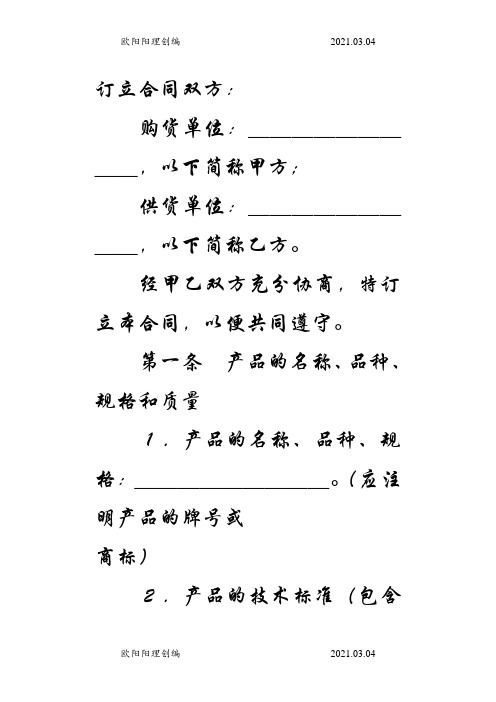 欧阳阳理创编 2021.03.04
订立合同双方：
购货单位：＿＿＿＿＿＿＿
＿＿，以下简称甲方；
供货单位：＿＿＿＿＿＿＿
＿＿，以下简称乙方。
经甲乙双方充分协商，特订
立本合同，以便共同遵守。
第一条 产品的名称、品种、
规格和质量
１．产品的名称、品种、规
格：＿＿＿＿＿＿＿＿＿。（应注
明产品的牌号或
商标）
２．产品的技术标准（包含
欧阳阳理创编 2021.03.04